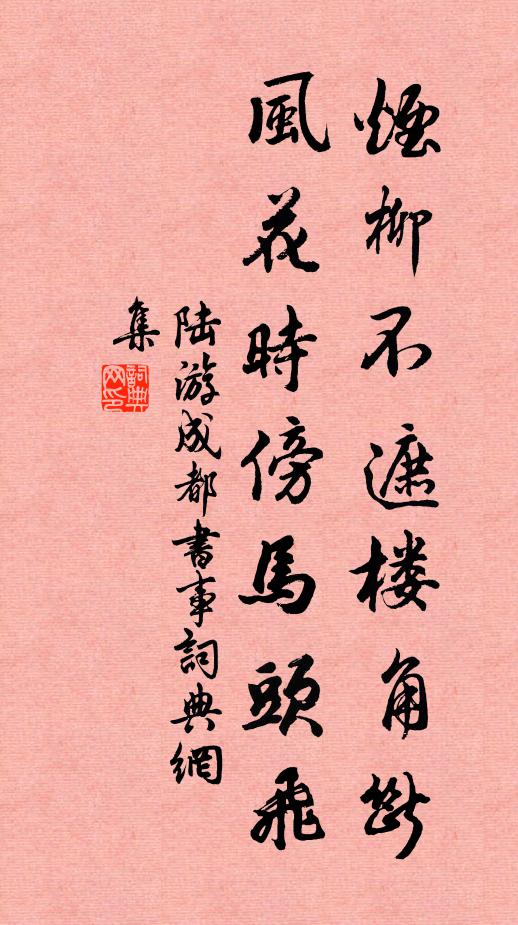 煙柳不遮楼角斷
風花時傍馬頭飛
陆游成都書事詞典網
集
詞典
网印